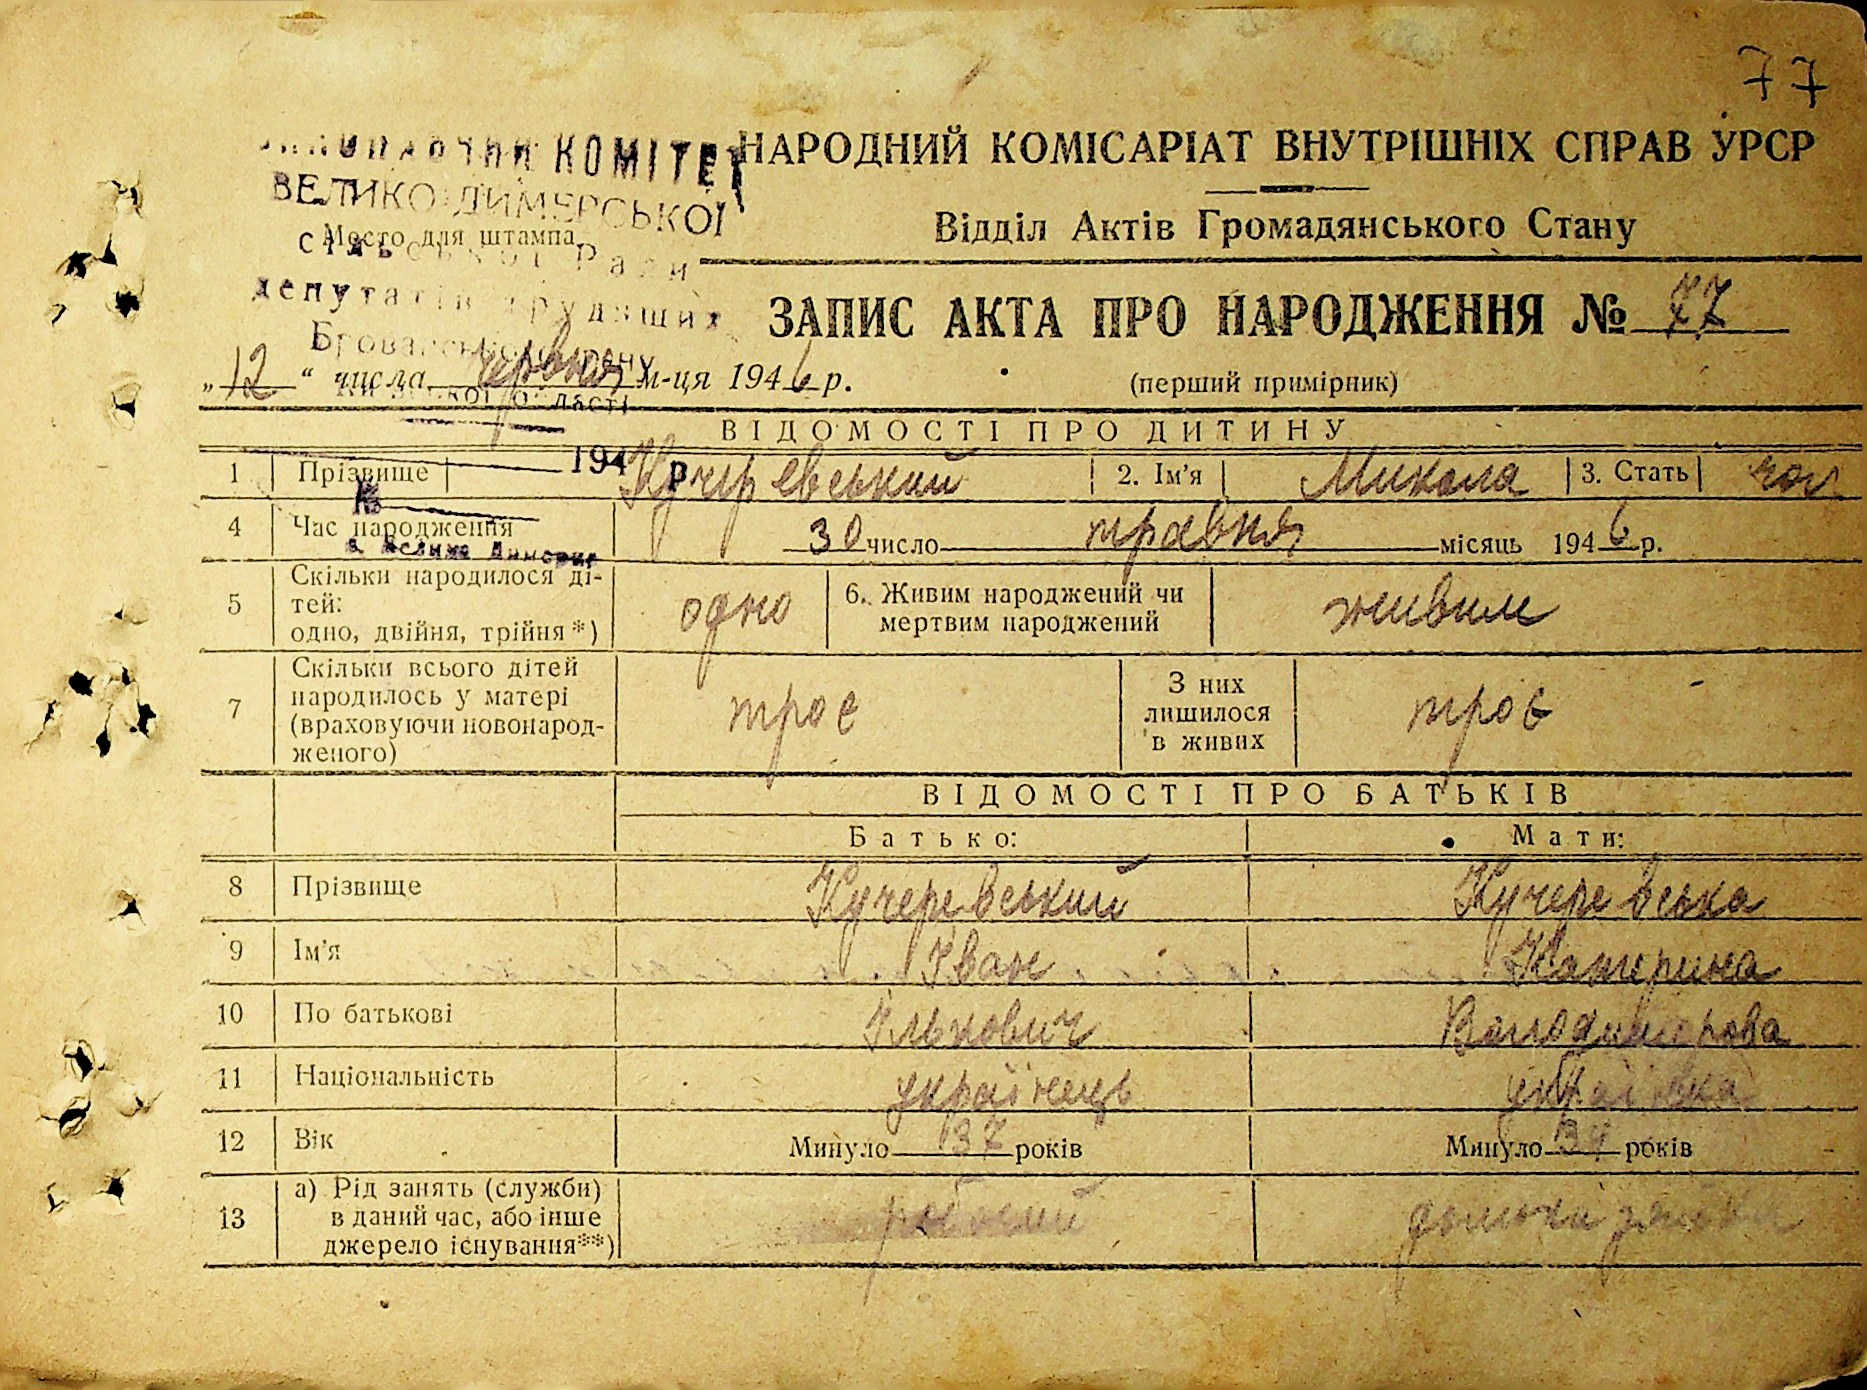 77
КОМІТЕТ
ВЕЛИКО ДИМЕРСЬКОЇ
Место для штампа
сільської Ради
депутатів трудящих
НАРОДНИЙ КОМІСАРІАТ ВНУТРІШНІХ СПРАВ УРСР
Відділ Актів Громадянського Стану
ЗАПИС АКТА ПРО НАРОДЖЕННЯ № 77
„12“ числа червня м-ця 1946 р.
(перший примірник)
області
ВІДОМОСТІ ПРО ДИТИНУ
194 р
1 Прізвище Кучеревський 2. Ім'я Микола 3. Стать чол.
№
4 Час народження 30 число травня місяць 1946 р.
с Велика Димерка
5 Скільки народилося ді-
тей:
одно, двійня, трійня*) одно
6. Живим народжений чи
мертвим народжений живим
7 Скільки всього дітей
народилось у матері
(враховуючи новонарод-
женого) троє
З них
лишилося
в живих троє
ВІДОМОСТІ ПРО БАТЬКІВ
Батько: Мати:
8 Прізвище Кучеревський Кучеревська
9 Ім'я Іван Катерина
10 По батьковіІлькович Володимирова
11 Національність українець українка
12 Вік Минуло 37 років Минуло 34 років
13 а) Рід занять (служби)
в даний час, або інше
джерело існування**) робочий